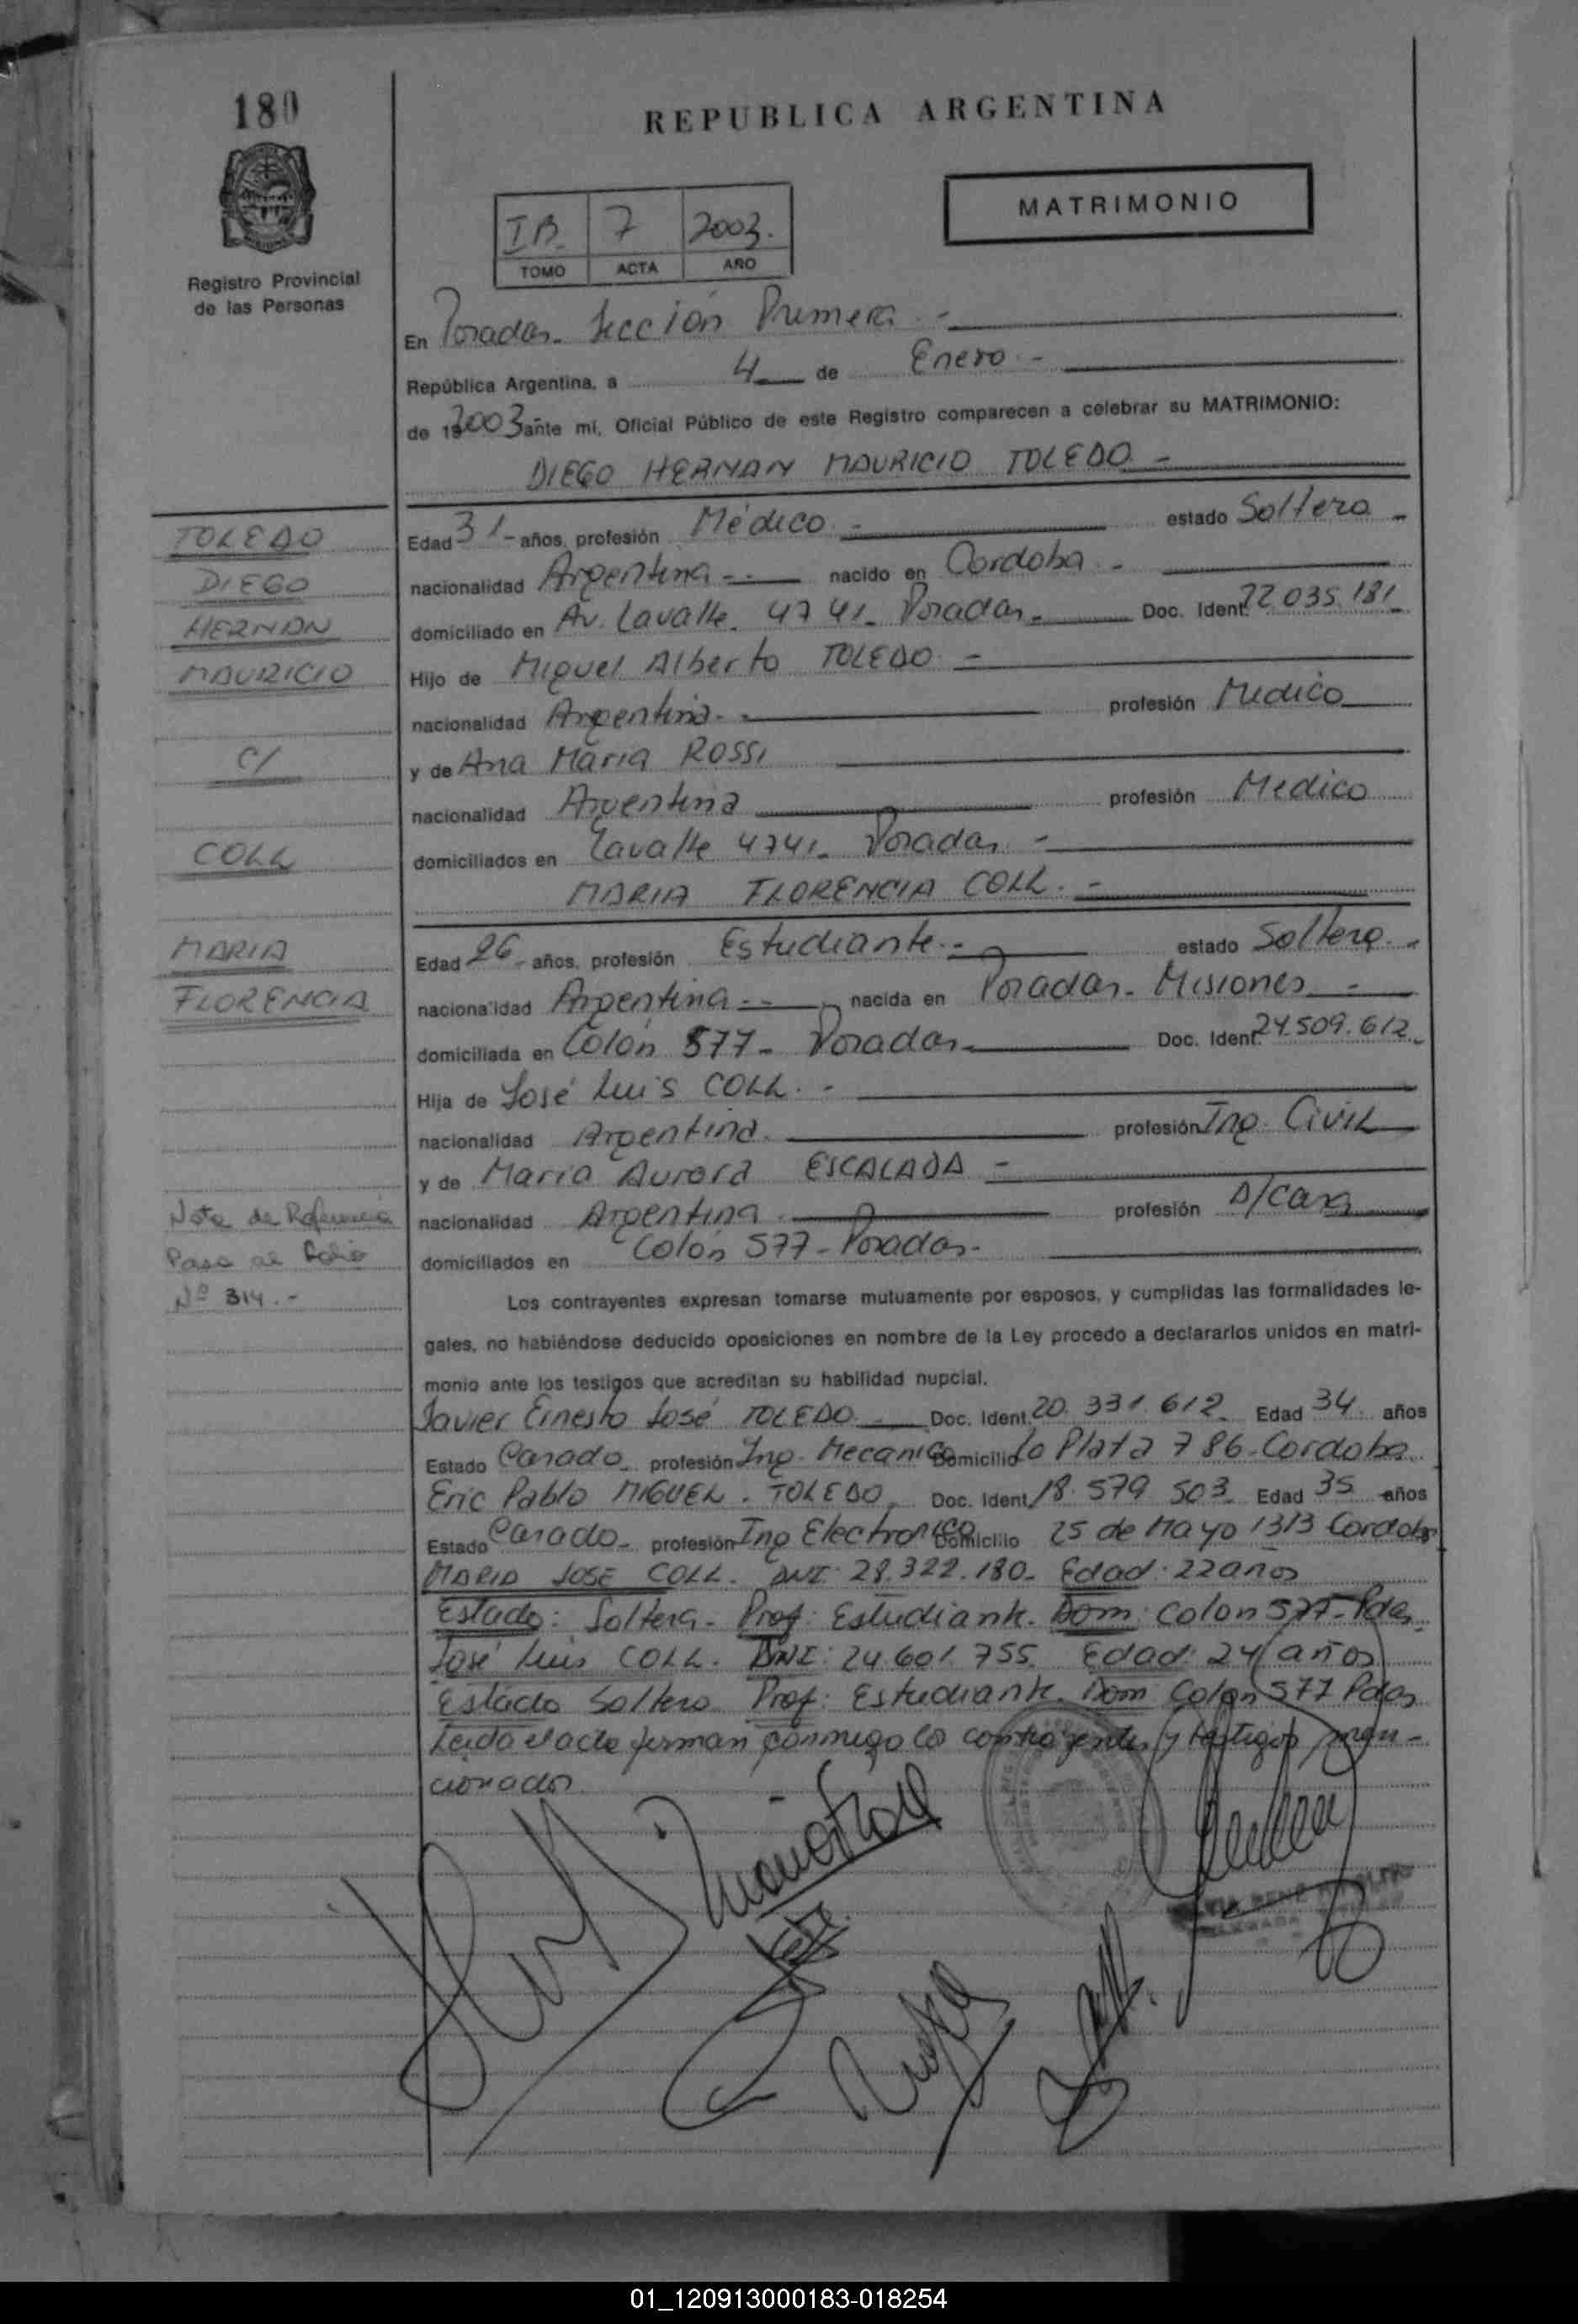 180
REPUBLICA ARGENTINA
MATRIMONIO
IB. 7 2003.
TOMO ACTA AÑO
Registro Provincial
de las Personas
En Posadas. Sección Primera.-
República Argentina, a 4 de Enero.-
de 192003 ante mí, Oficial Público de este Registro comparecen a celebrar su MATRIMONIO:
DIEGO HERNAN MAURICIO TOLEDO-
TOLEDO
DIEGO
HERNAN
MAURICIO
C/
COLL
MARIA
FLORENCIA
Nota de Referencia
Pasa al folio
Nº 314.-
Edad 31- años, profesión Médico.- estado Soltero-
nacionalidad Argentina-.- nacido en Cordoba.-
domiciliado en Av. Lavalle. 4741. Posadas.- Doc. Ident. 22.035.181
Hijo de Miguel Alberto TOLEDO-
nacionalidad Argentina.- profesión Medico
y de Ana Maria ROSSI
nacionalidad Argentina profesión Medico
domiciliados en Lavalle 4741. Posadas-
MARIA FLORENCIA COLL.-
Edad 26- años, profesión Estudiante.- estado Soltera.-
nacionalidad Argentina.- nacida en Posadas. Misiones-
domiciliada en Colón 577- Posadas- Doc. Ident. 24.509.612.
Hija de José Luis COLL.-
nacionalidad Argentina. profesión Ing. Civil
y de Maria Aurora ESCALADA-
nacionalidad Argentina profesión A/casa
domiciliados en Colón 577-Posadas-
Los contrayentes expresan tomarse mutuamente por esposos, y cumplidas las formalidades le-
gales, no habiéndose deducido oposiciones en nombre de la Ley procedo a declararlos unidos en matri-
monio ante los testigos que acreditan su habilidad nupcial.
Javier Ernesto José TOLEDO Doc. Ident. 20.331.612 Edad 34 años
Estado Casado profesión Ing. Mecanico Domicilio La Plata 786-Cordoba
Eric Pablo MIGUEL. TOLEDO Doc. Ident. 18.579.503 Edad 35 años
Estado Casado- profesión Ing Electronico Domicilio 25 de Mayo 1313 Cordoba
MARIA JOSE COLL. DNI: 28.322.180- Edad: 22 años
Estado: Soltera- Prof: Estudiante. Dom: Colon 577-Pdas.
José Luis COLL. DNI: 24.601.755. Edad: 24 años
Estado Soltero Prof: Estudiante. Dom Colon 577 Pdas
Leida el acta firman conmigo los contrayentes y testigos men-
cionados.
01_120913000183-018254